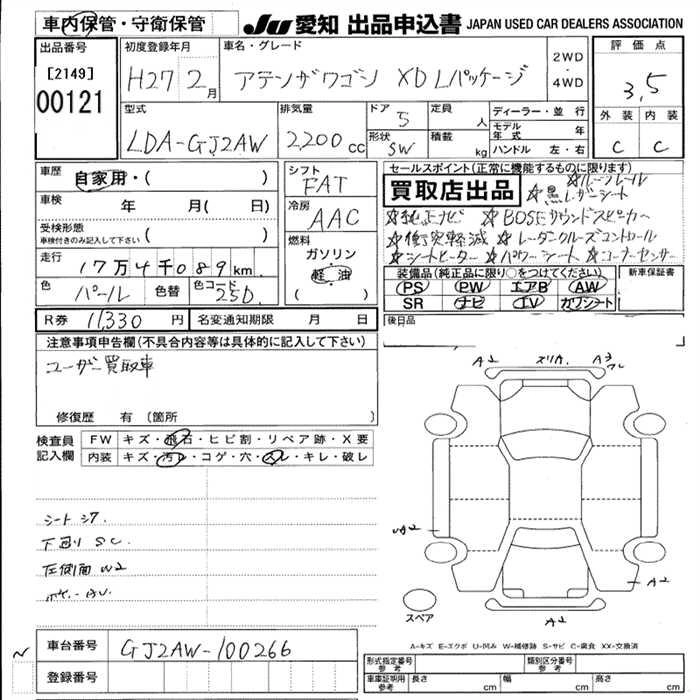 車内保管・守衛保管
JU 愛知 出品申込書 JAPAN USED CAR DEALERS ASSOCIATION
出品番号
[2149]
00121
初度登録年月
H27 2月
車名・グレード
アテンザワゴン XD Lパッケージ
2WD
・
4WD
評価点
3.5
外装 内装
C C
型式
LDA-GJ2AW
排気量
2200cc
ドア
5
形状
SW
定員
人
積載
kg
ディーラー・並行
モデル年式 年
ハンドル 左・右
車歴
自家用・( )
車検 年 月( 日)
受検形態
車検付きのみ記入して下さい ( )
走行
17万4千089km
色 パール 色替 色コード 25D
シフト
FAT
冷房
AAC
燃料
ガソリン
軽油
( )
セールスポイント(正常に機能するものに限ります)
買取店出品
☆ルーフレール
☆黒レザーシート
☆純正ナビ ☆BOSEサウンドスピーカー
☆衝突軽減 ☆レーダークルーズコントロール
☆シートヒーター ☆パワーシート ☆コーナーセンサー
装備品(純正品に限り○をつけてください)
PS PW エアB AW
SR ナビ TV カワシート
新車保証書
後日品
R券 11,330円 名変通知期限 月 日
注意事項申告欄(不具合内容等は具体的に記入して下さい)
ユーザー買取車
修復歴 有 〔箇所 〕
検査員記入欄
FW キズ・飛石・ヒビ割・リペア跡・X要
内装 キズ・汚レ・コゲ・穴・スレ・キレ・破レ
シートシワ
下廻り SC
左側面 W2
A2 スリA. A3
W2
A2
A2
スペア
A=キズ E=エクボ U=凹み W=補修跡 S=サビ C=腐食 XX=交換済
車台番号 GJ2AW-100266
登録番号
形式指定番号 参考 類別区分番号 参考
車庫証明用 参考 長さ cm 幅 cm 高さ cm